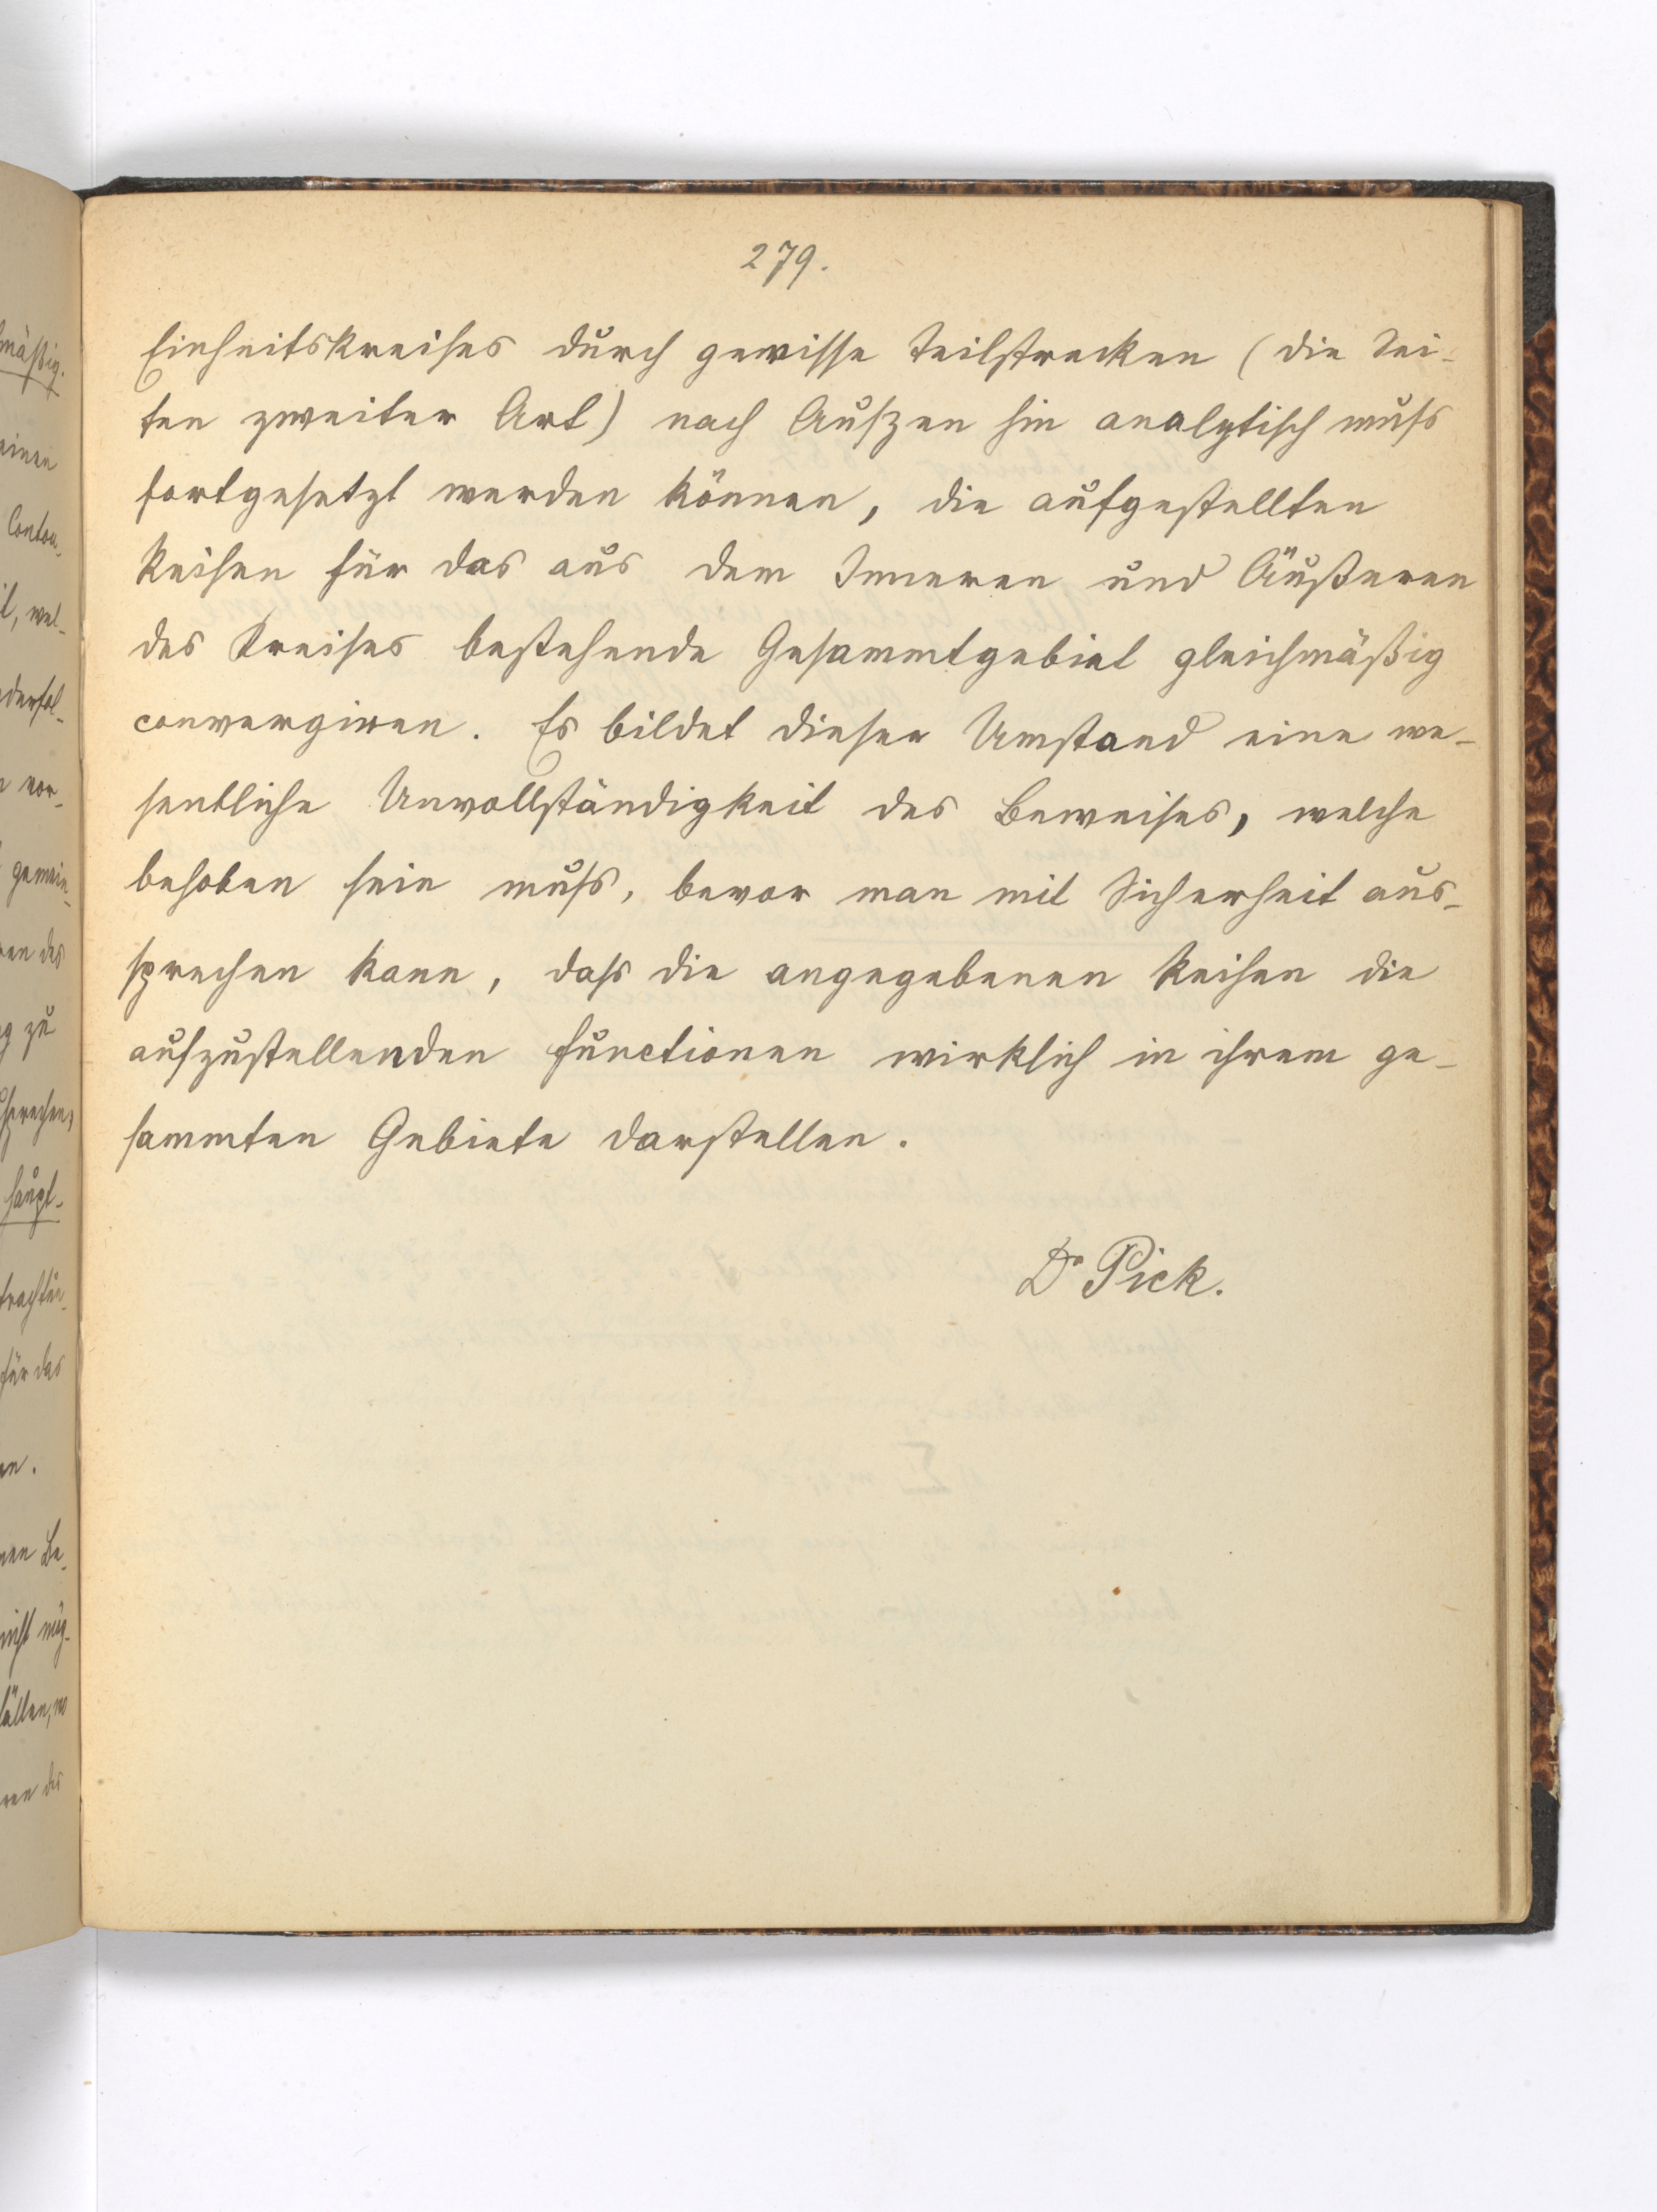 279.
Einheitskreises durch gewisse Teilstrecken (die Sei-
ten zweiter Art) nach Auszen hin analytisch muss
fortgesetzt werden können, die aufgestellten
Reihen für das aus dem Inneren und Äußeren
des Kreises bestehende Gesammtgebiet gleichmäßig
convergiren. Es bildet dieser Umstand eine we-
sentliche Unvollständigkeit des Beweises, welche
behoben sein muss, bevor man mit Sicherheit aus-
sprechen kann, dass die angegebenen Reihen die
aufzustellenden Functionen wirklich in ihrem ge-
sammten Gebiete darstellen.
Dr Pick.